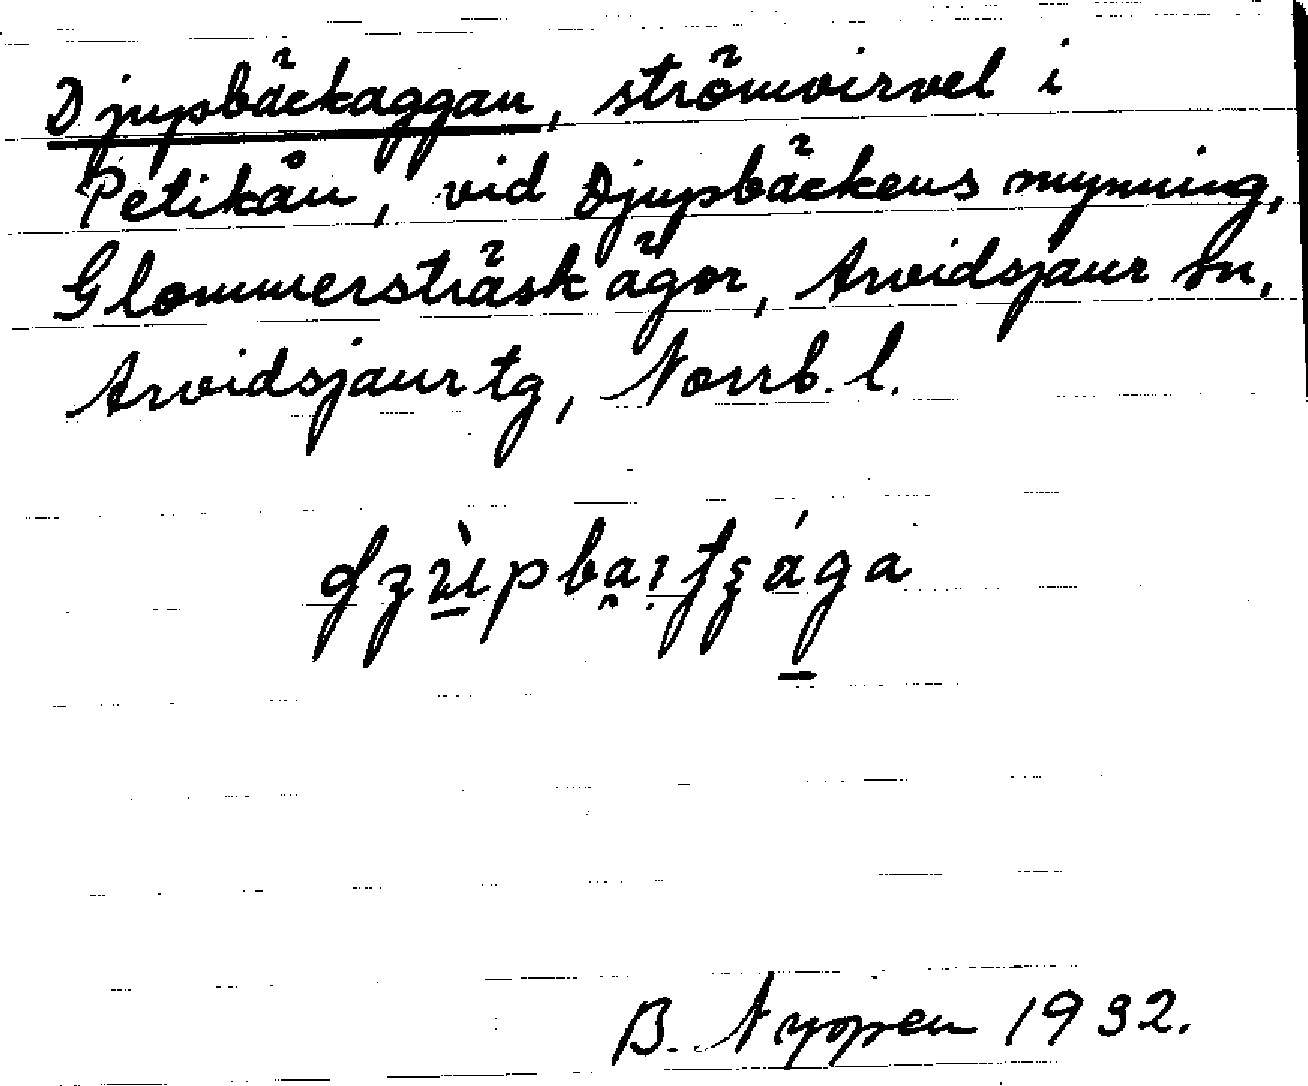 Djupbäckaggan, strömvirvel i
Petikån, vid Djupbäckens mynning,
Glommersträsk ägor, Arvidsjaur sn,
Arvidsjaur tg, Norrb. l.
B. Nyppen 1932.